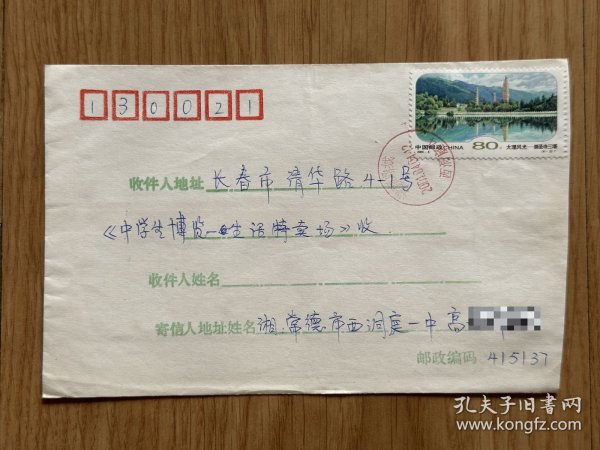 130021
中国邮政CHINA 80分 大理风光—崇圣寺三塔
收件人地址 长春市清华路4-1号
《中学生博览—生活特卖场》收
收件人姓名
寄信人地址姓名 湘.常德市西洞庭一中高
邮政编码 415137
孔夫子旧书网
www.kongfz.com